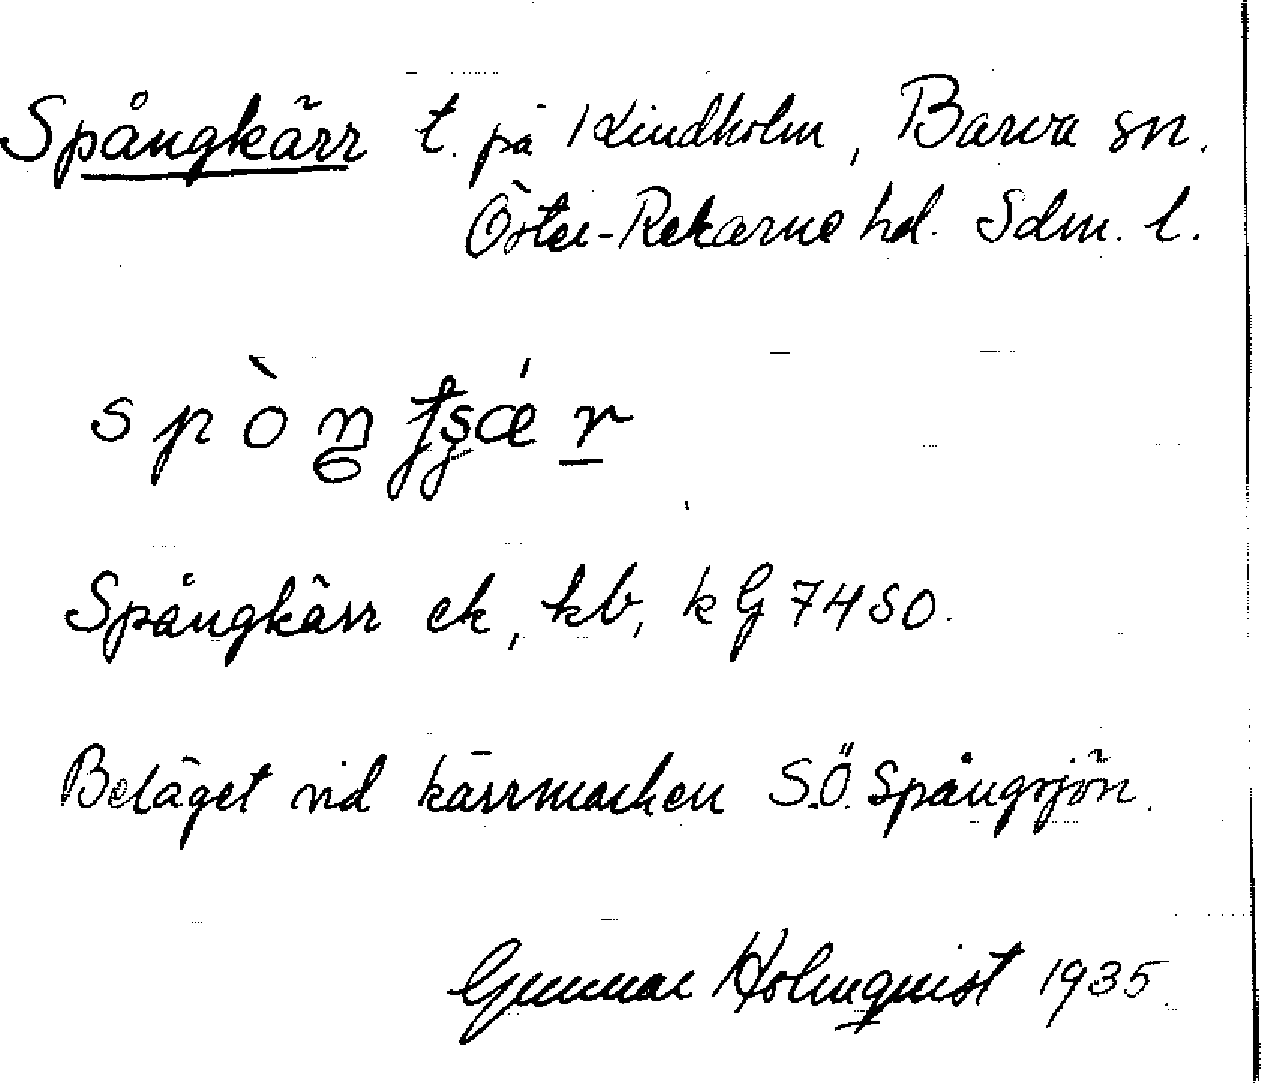 Spångkärr t. på Lindholm, Barva sn.
Öster-Rekarne hd. Sdm. l.
Spångkärr ek, kb, kG 7450.
Beläget vid kärrmarken S.Ö. Spångsjön.
Gunnar Holmquist 1935.